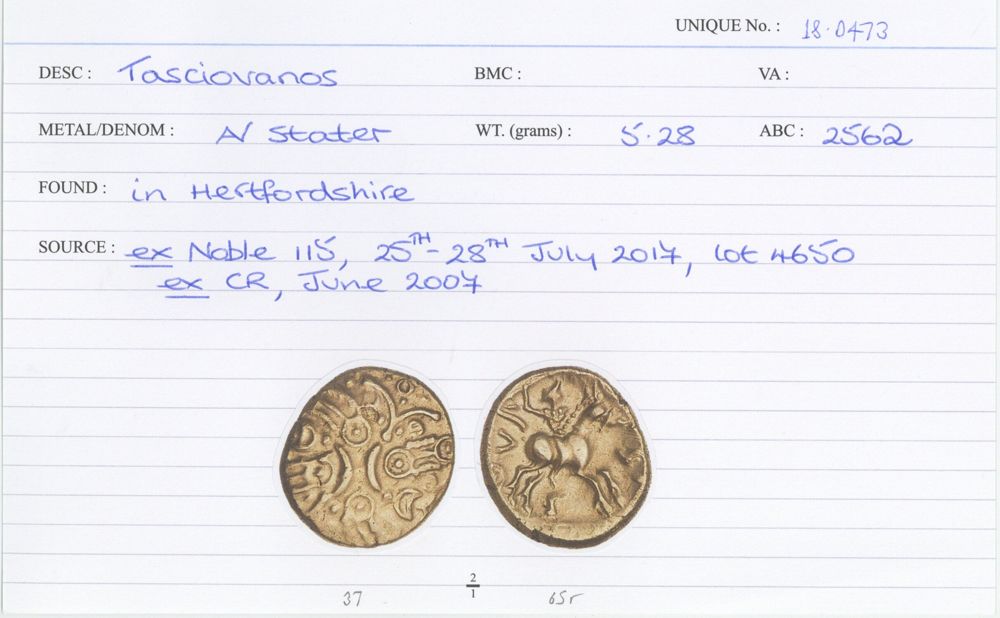 UNIQUE No. : 18.0473
DESC : Tasciovanos BMC : VA :
METAL/DENOM : A/ Stater WT. (grams) : 5.28 ABC : 2562
FOUND : in Hertfordshire
SOURCE : ex Noble 115, 25TH - 28TH July 2017, lot 4650
ex CR, June 2007
2/1
37 65r